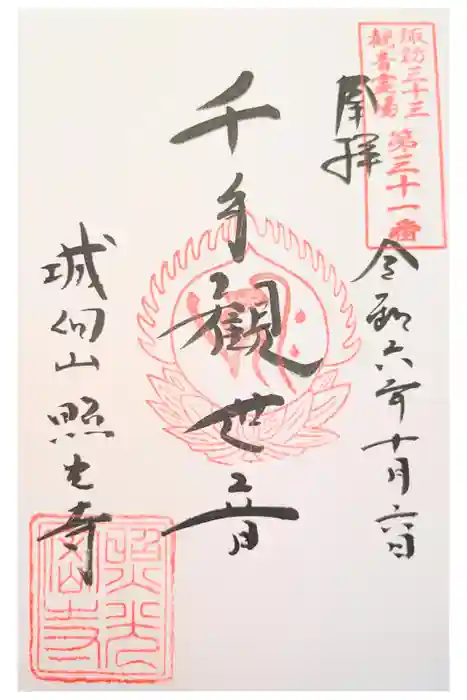 諏訪三十三
観音霊場
第三十一番
奉拝
令和六年十月六日
千手観世音
城向山 照光寺
照光寺